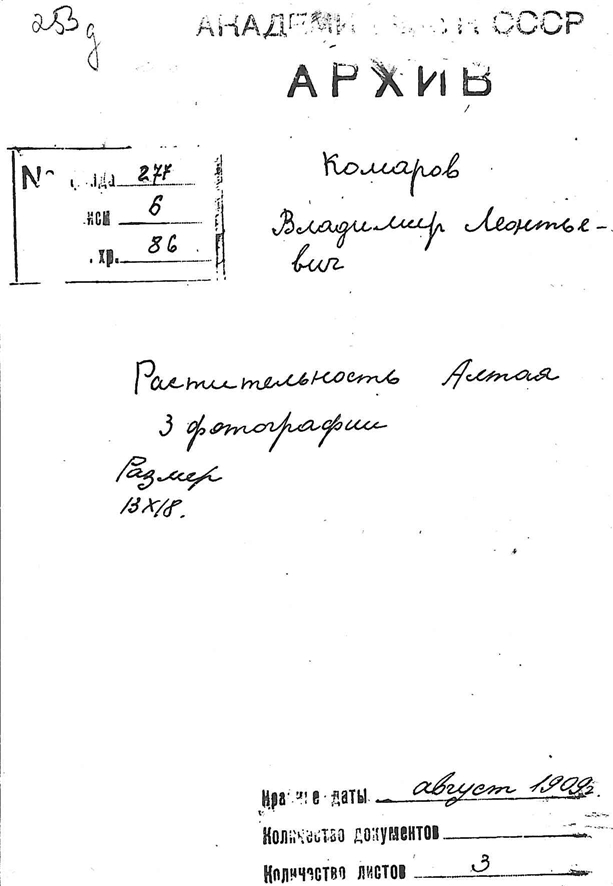 253 д
АКАДЕМИЯ НАУК СССР
АРХИВ
№ фонда 277
описи 6
ед. хр. 86
Комаров
Владимир Леонтье-
вич
Растительность Алтая
3 фотографии
Размер
13X18.
Крайние даты август 1909г.
Количество документов
Количество листов 3